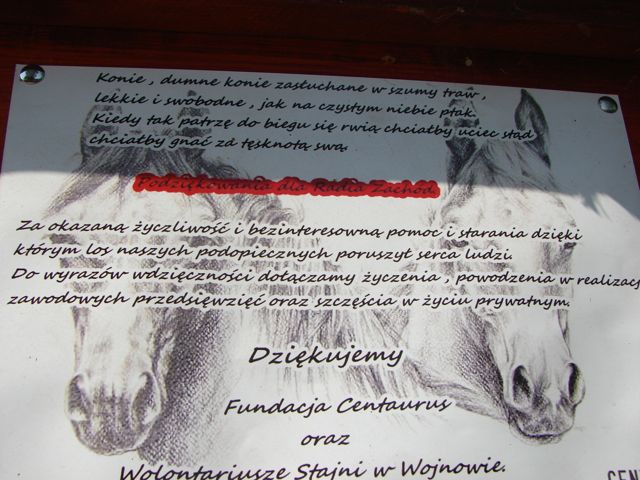 Konie , dumne konie zasłuchane w szumy traw ,
lekkie i swobodne , jak na czystym niebie ptak.
Kiedy tak patrzę do biegu się rwią chciałby uciec stąd
chciałby gnać za tęsknotą swą.
Podziękowania dla Radia Zachód.
Za okazaną życzliwość i bezinteresowną pomoc i starania dzięki
którym los naszych podopiecznych poruszył serca ludzi.
Do wyrazów wdzięczności dołączamy życzenia , powodzenia w realizacj
zawodowych przedsięwzięć oraz szczęścia w życiu prywatnym.
Dziękujemy
Fundacja Centaurus
oraz
Wolontariusze Stajni w Wojnowie.
CEN